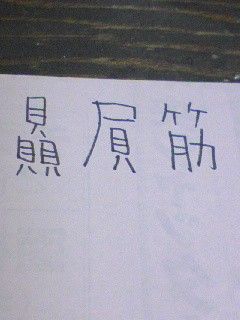 贔屓筋